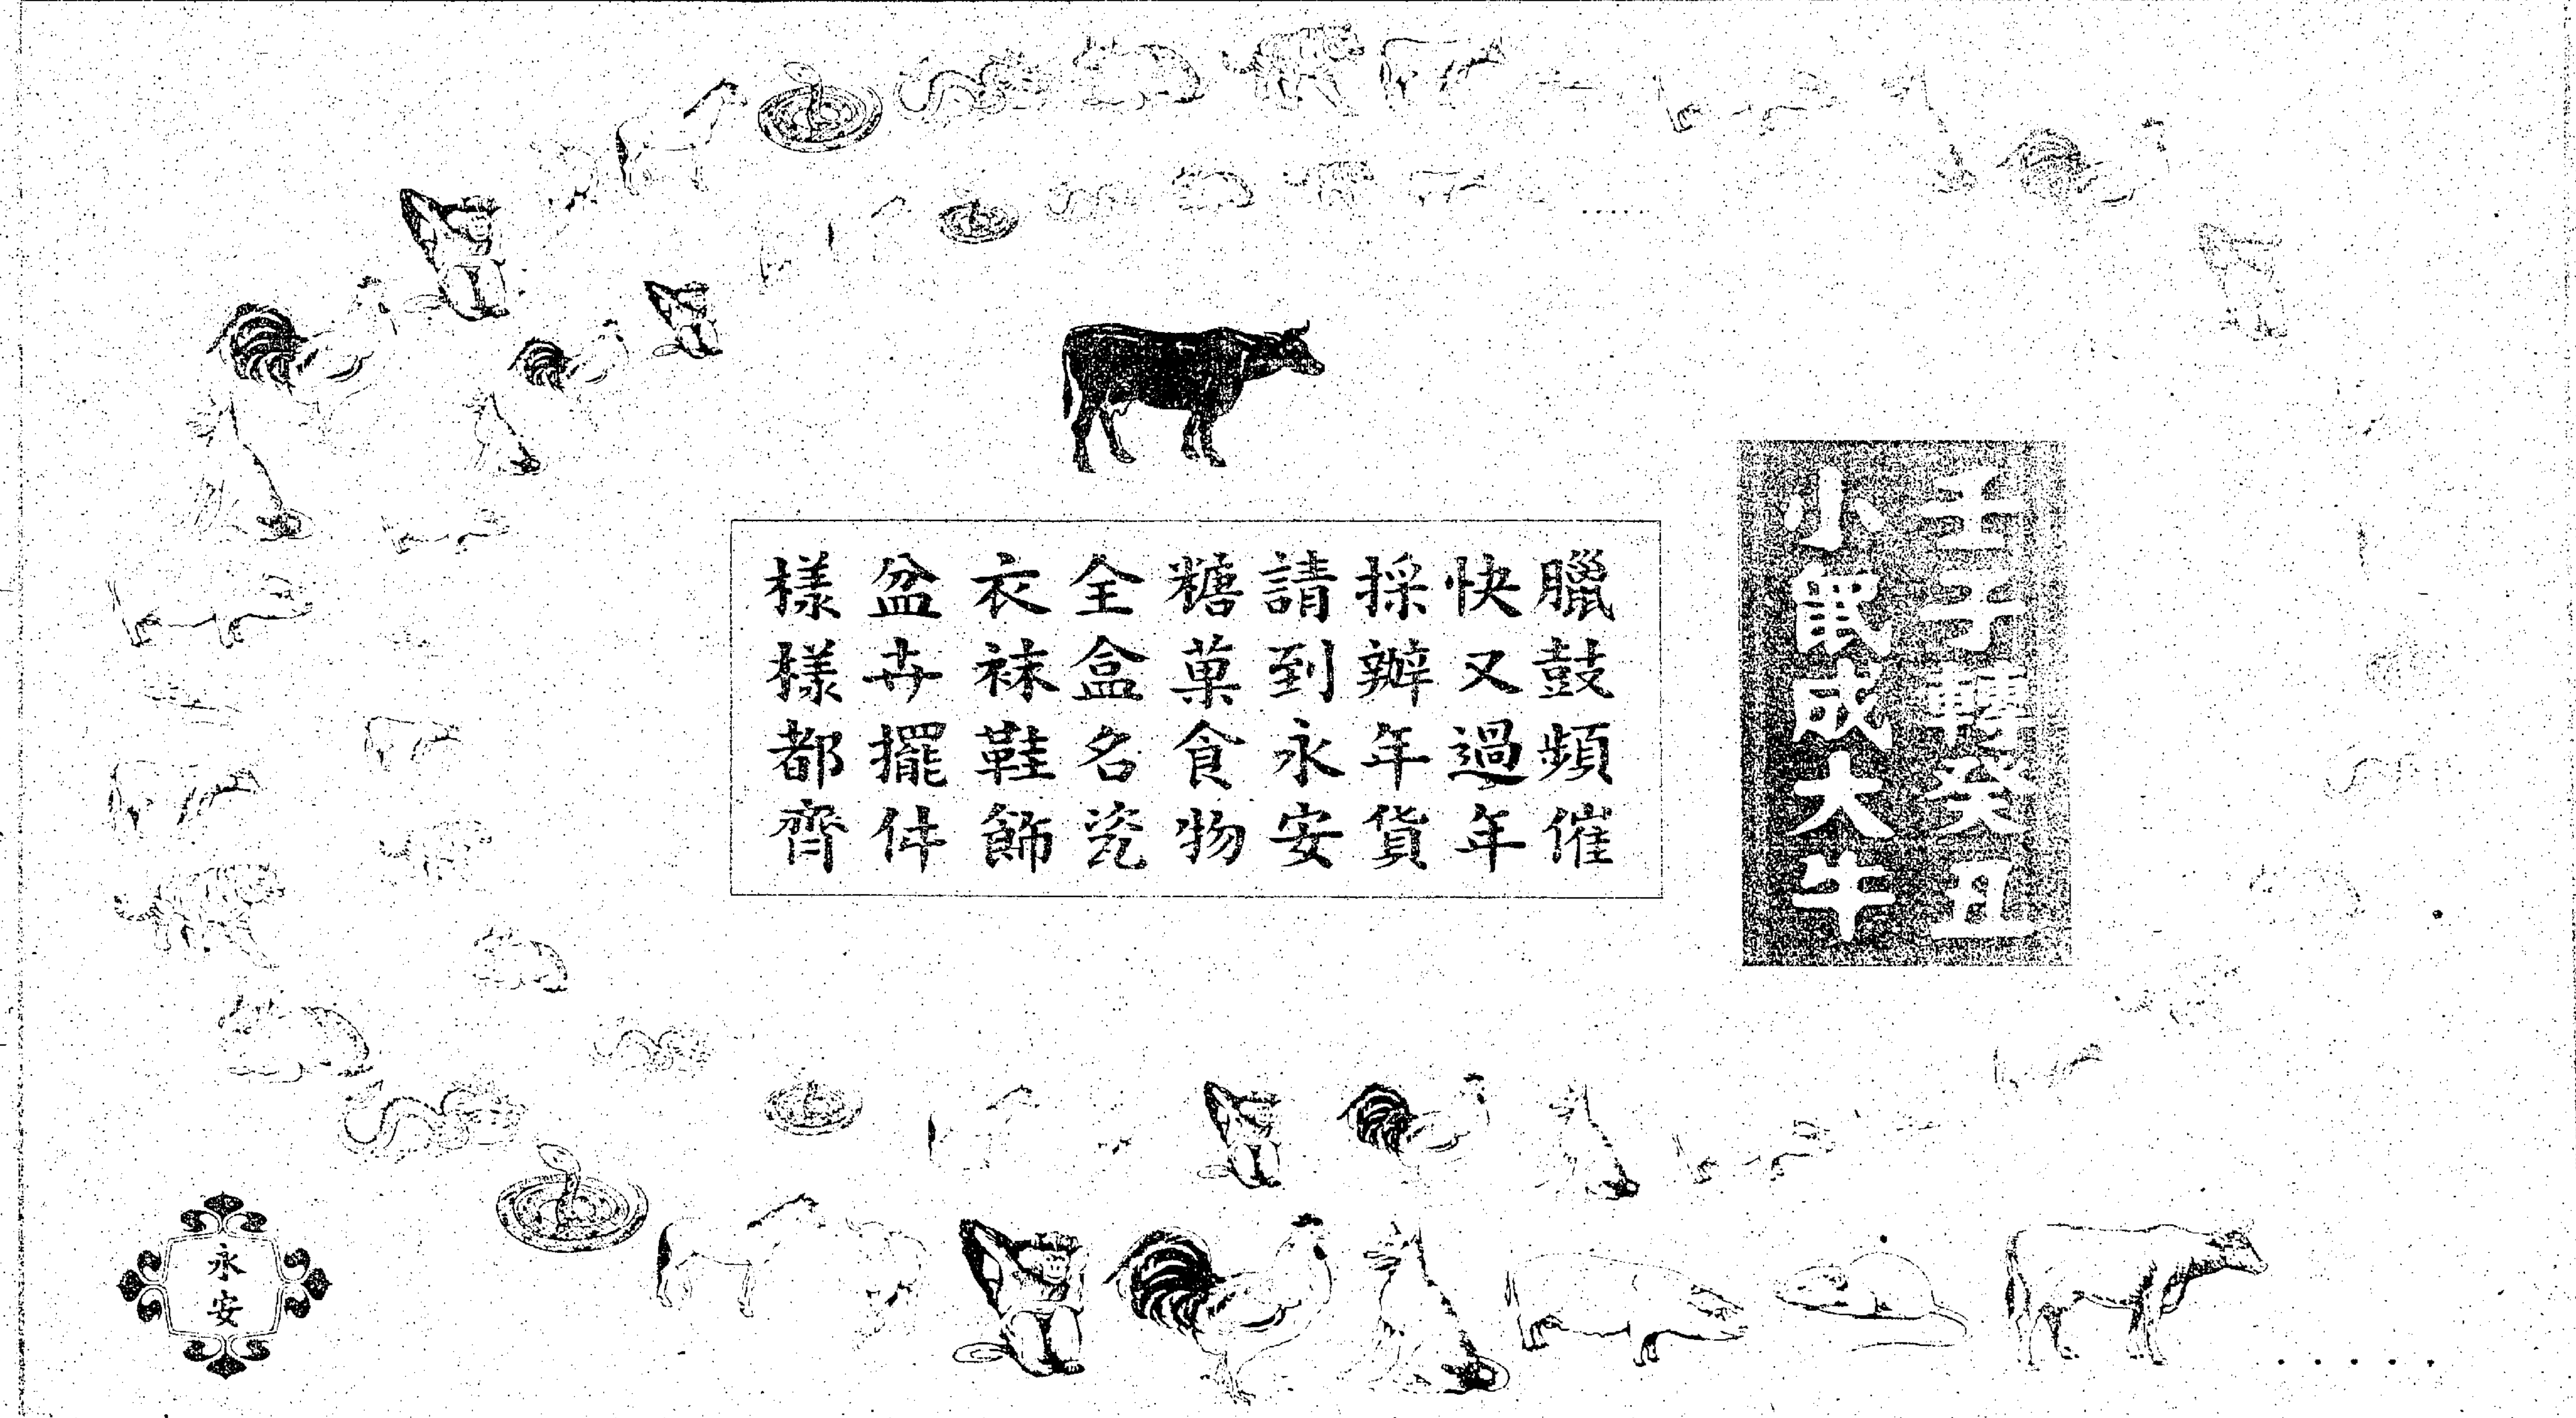 壬子轉癸丑
小鼠成大牛
臘鼓頻催
快又過年
採辦年貨
請到永安
糖菓食物
全盒名瓷
衣袜鞋飾
盆卉擺件
樣樣都齊
永安